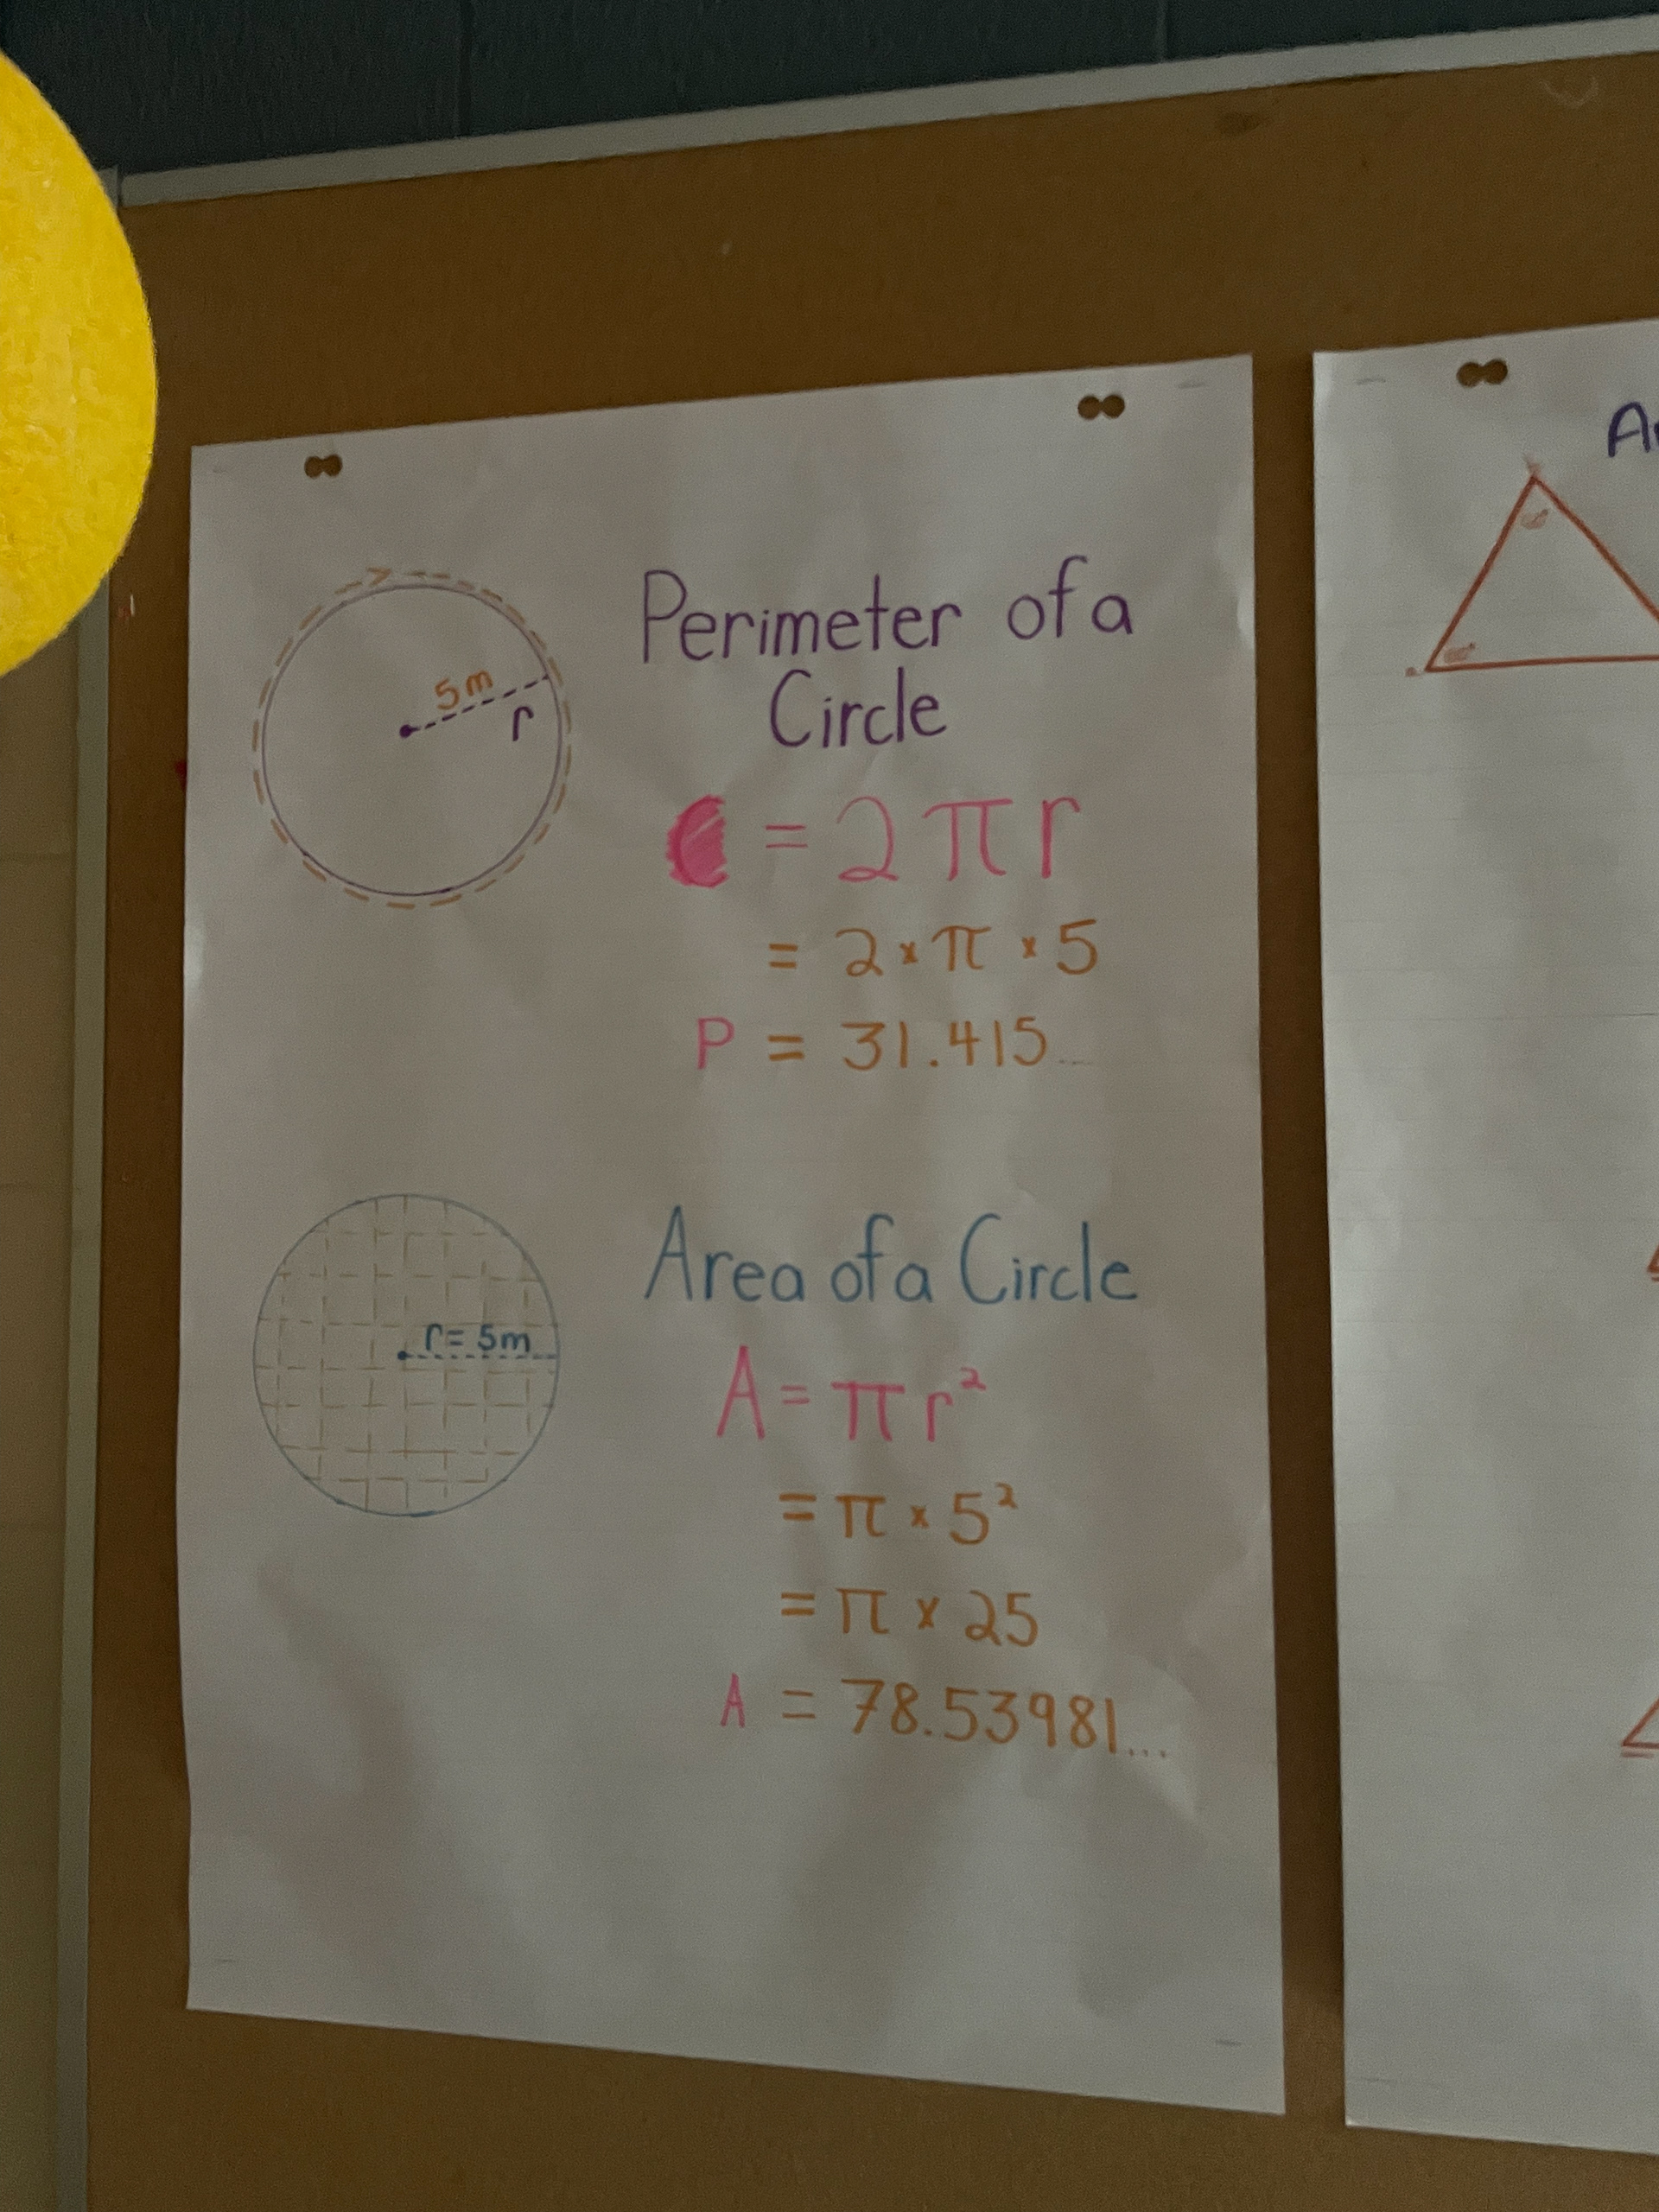 5m
r
Perimeter of a
Circle
= 2πr
= 2 × π × 5
P = 31.415...
Area of a Circle
r = 5m
A = πr²
= π × 5²
= π × 25
A = 78.53981...